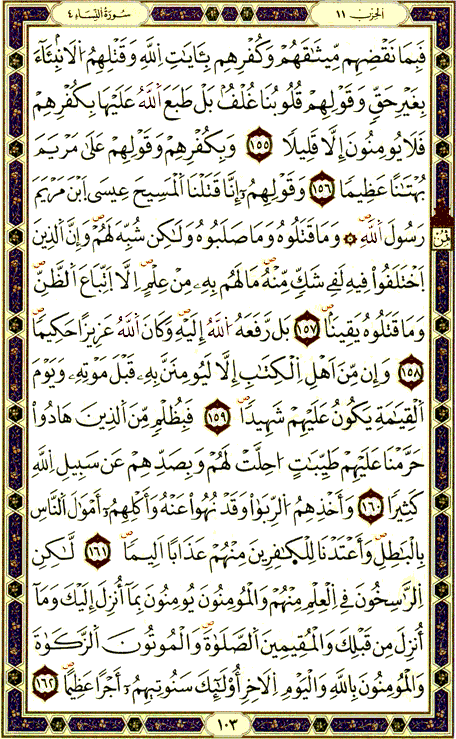 الحزب ١١ سورة النساء ٤
فَبِمَا نَقْضِهِم مِّيثَٰقَهُمْ وَكُفْرِهِم بِـَٔايَٰتِ اِ۬للَّهِ وَقَتْلِهِمُ اُ۬لَانۢبِئَآءَ
بِغَيْرِ حَقٍّ وَقَوْلِهِمْ قُلُوبُنَا غُلْفُۢ بَلْ طَبَعَ اَ۬للَّهُ عَلَيْهَا بِكُفْرِهِمْ
فَلَا يُومِنُونَ إِلَّا قَلِيلًا ١٥٥ وَبِكُفْرِهِمْ وَقَوْلِهِمْ عَلَىٰ مَرْيَمَ
بُهْتَٰنًا عَظِيمًا ١٥٦ وَقَوْلِهِمُۥٓ إِنَّا قَتَلْنَا اَ۬لْمَسِيحَ عِيسَى اَ۪بْنَ مَرْيَمَ
رَسُولَ اَ۬للَّهِ وَمَا قَتَلُوهُ وَمَا صَلَبُوهُ وَلَٰكِن شُبِّهَ لَهُمْ وَإِنَّ اَ۬لذِينَ
اَ۪خْتَلَفُوا۟ فِيهِ لَفِے شَكٍّ مِّنْهُ مَا لَهُم بِهِۦ مِنْ عِلْمٍ اِلَّا اَ۪تِّبَاعَ اَ۬لظَّنِّ
وَمَا قَتَلُوهُ يَقِينًۢا ١٥٧ بَل رَّفَعَهُ اُ۬للَّهُ إِلَيْهِ وَكَانَ اَ۬للَّهُ عَزِيزًا حَكِيمًا
١٥٨ وَإِن مِّنَ اَهْلِ اِ۬لْكِتَٰبِ إِلَّا لَيُومِنَنَّ بِهِۦ قَبْلَ مَوْتِهِۦ وَيَوْمَ
اَ۬لْقِيَٰمَةِ يَكُونُ عَلَيْهِمْ شَهِيدًا ١٥٩ فَبِظُلْمٍ مِّنَ اَ۬لذِينَ هَادُوا۟
حَرَّمْنَا عَلَيْهِمْ طَيِّبَٰتٍ ا۟حِلَّتْ لَهُمْ وَبِصَدِّهِمْ عَن سَبِيلِ اِ۬للَّهِ
كَثِيرًا ١٦٠ وَأَخْذِهِمُ اُ۬لرِّبَوٰا۟ وَقَدْ نُهُوا۟ عَنْهُ وَأَكْلِهِمُۥٓ أَمْوَٰلَ اَ۬لنَّاسِ
بِالْبَٰطِلِ وَأَعْتَدْنَا لِلْكٰ۪فِرِينَ مِنْهُمْ عَذَابًا اَلِيمًا ١٦١ لَّٰكِنِ
اِ۬لرَّٰسِخُونَ فِے اِ۬لْعِلْمِ مِنْهُمْ وَالْمُومِنُونَ يُومِنُونَ بِمَآ أُنزِلَ إِلَيْكَ وَمَآ
أُنزِلَ مِن قَبْلِكَ وَالْمُقِيمِينَ اَ۬لصَّلَوٰةَ وَالْمُوتُونَ اَ۬لزَّكَوٰةَ
وَالْمُومِنُونَ بِاللَّهِ وَالْيَوْمِ اِ۬لَاخِرِ أُو۟لَٰٓئِكَ سَنُوتِيهِمُۥٓ أَجْرًا عَظِيمًا ١٦٢
ثمن
١٠٣